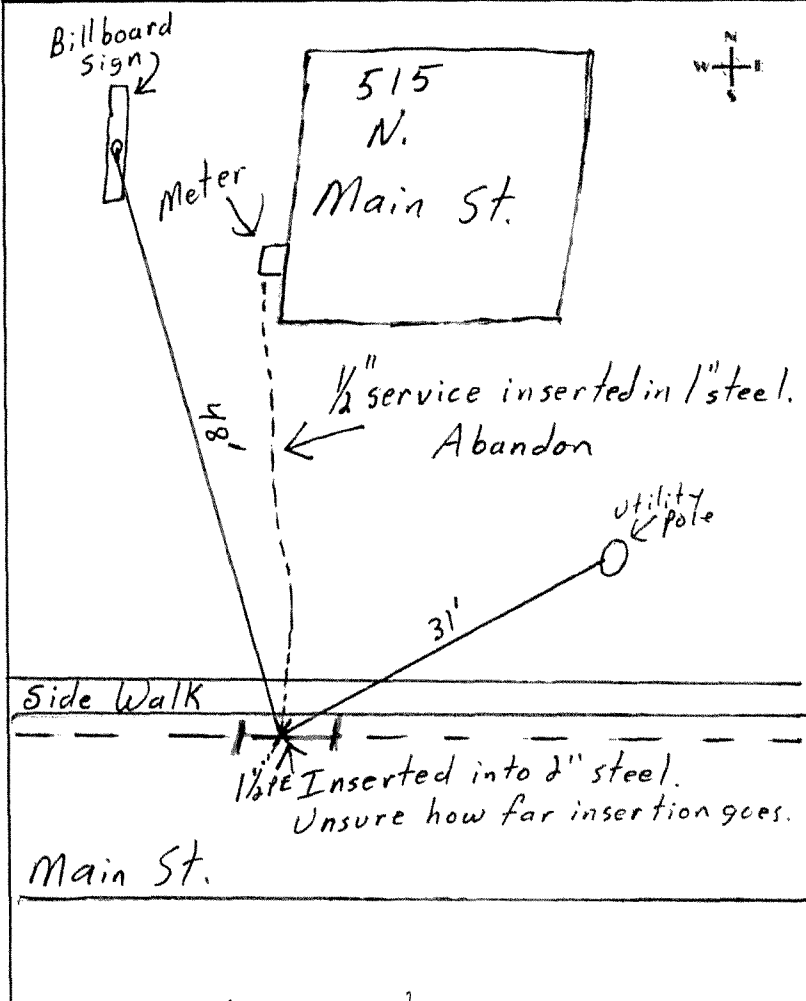 Billboard
Sign
N
W E
S
515
N.
Main St.
Meter
1/2" service inserted in 1" steel.
Abandon
48'
utility
pole
31'
Side Walk
1 1/2" PE Inserted into 2" steel.
Unsure how far insertion goes.
Main St.